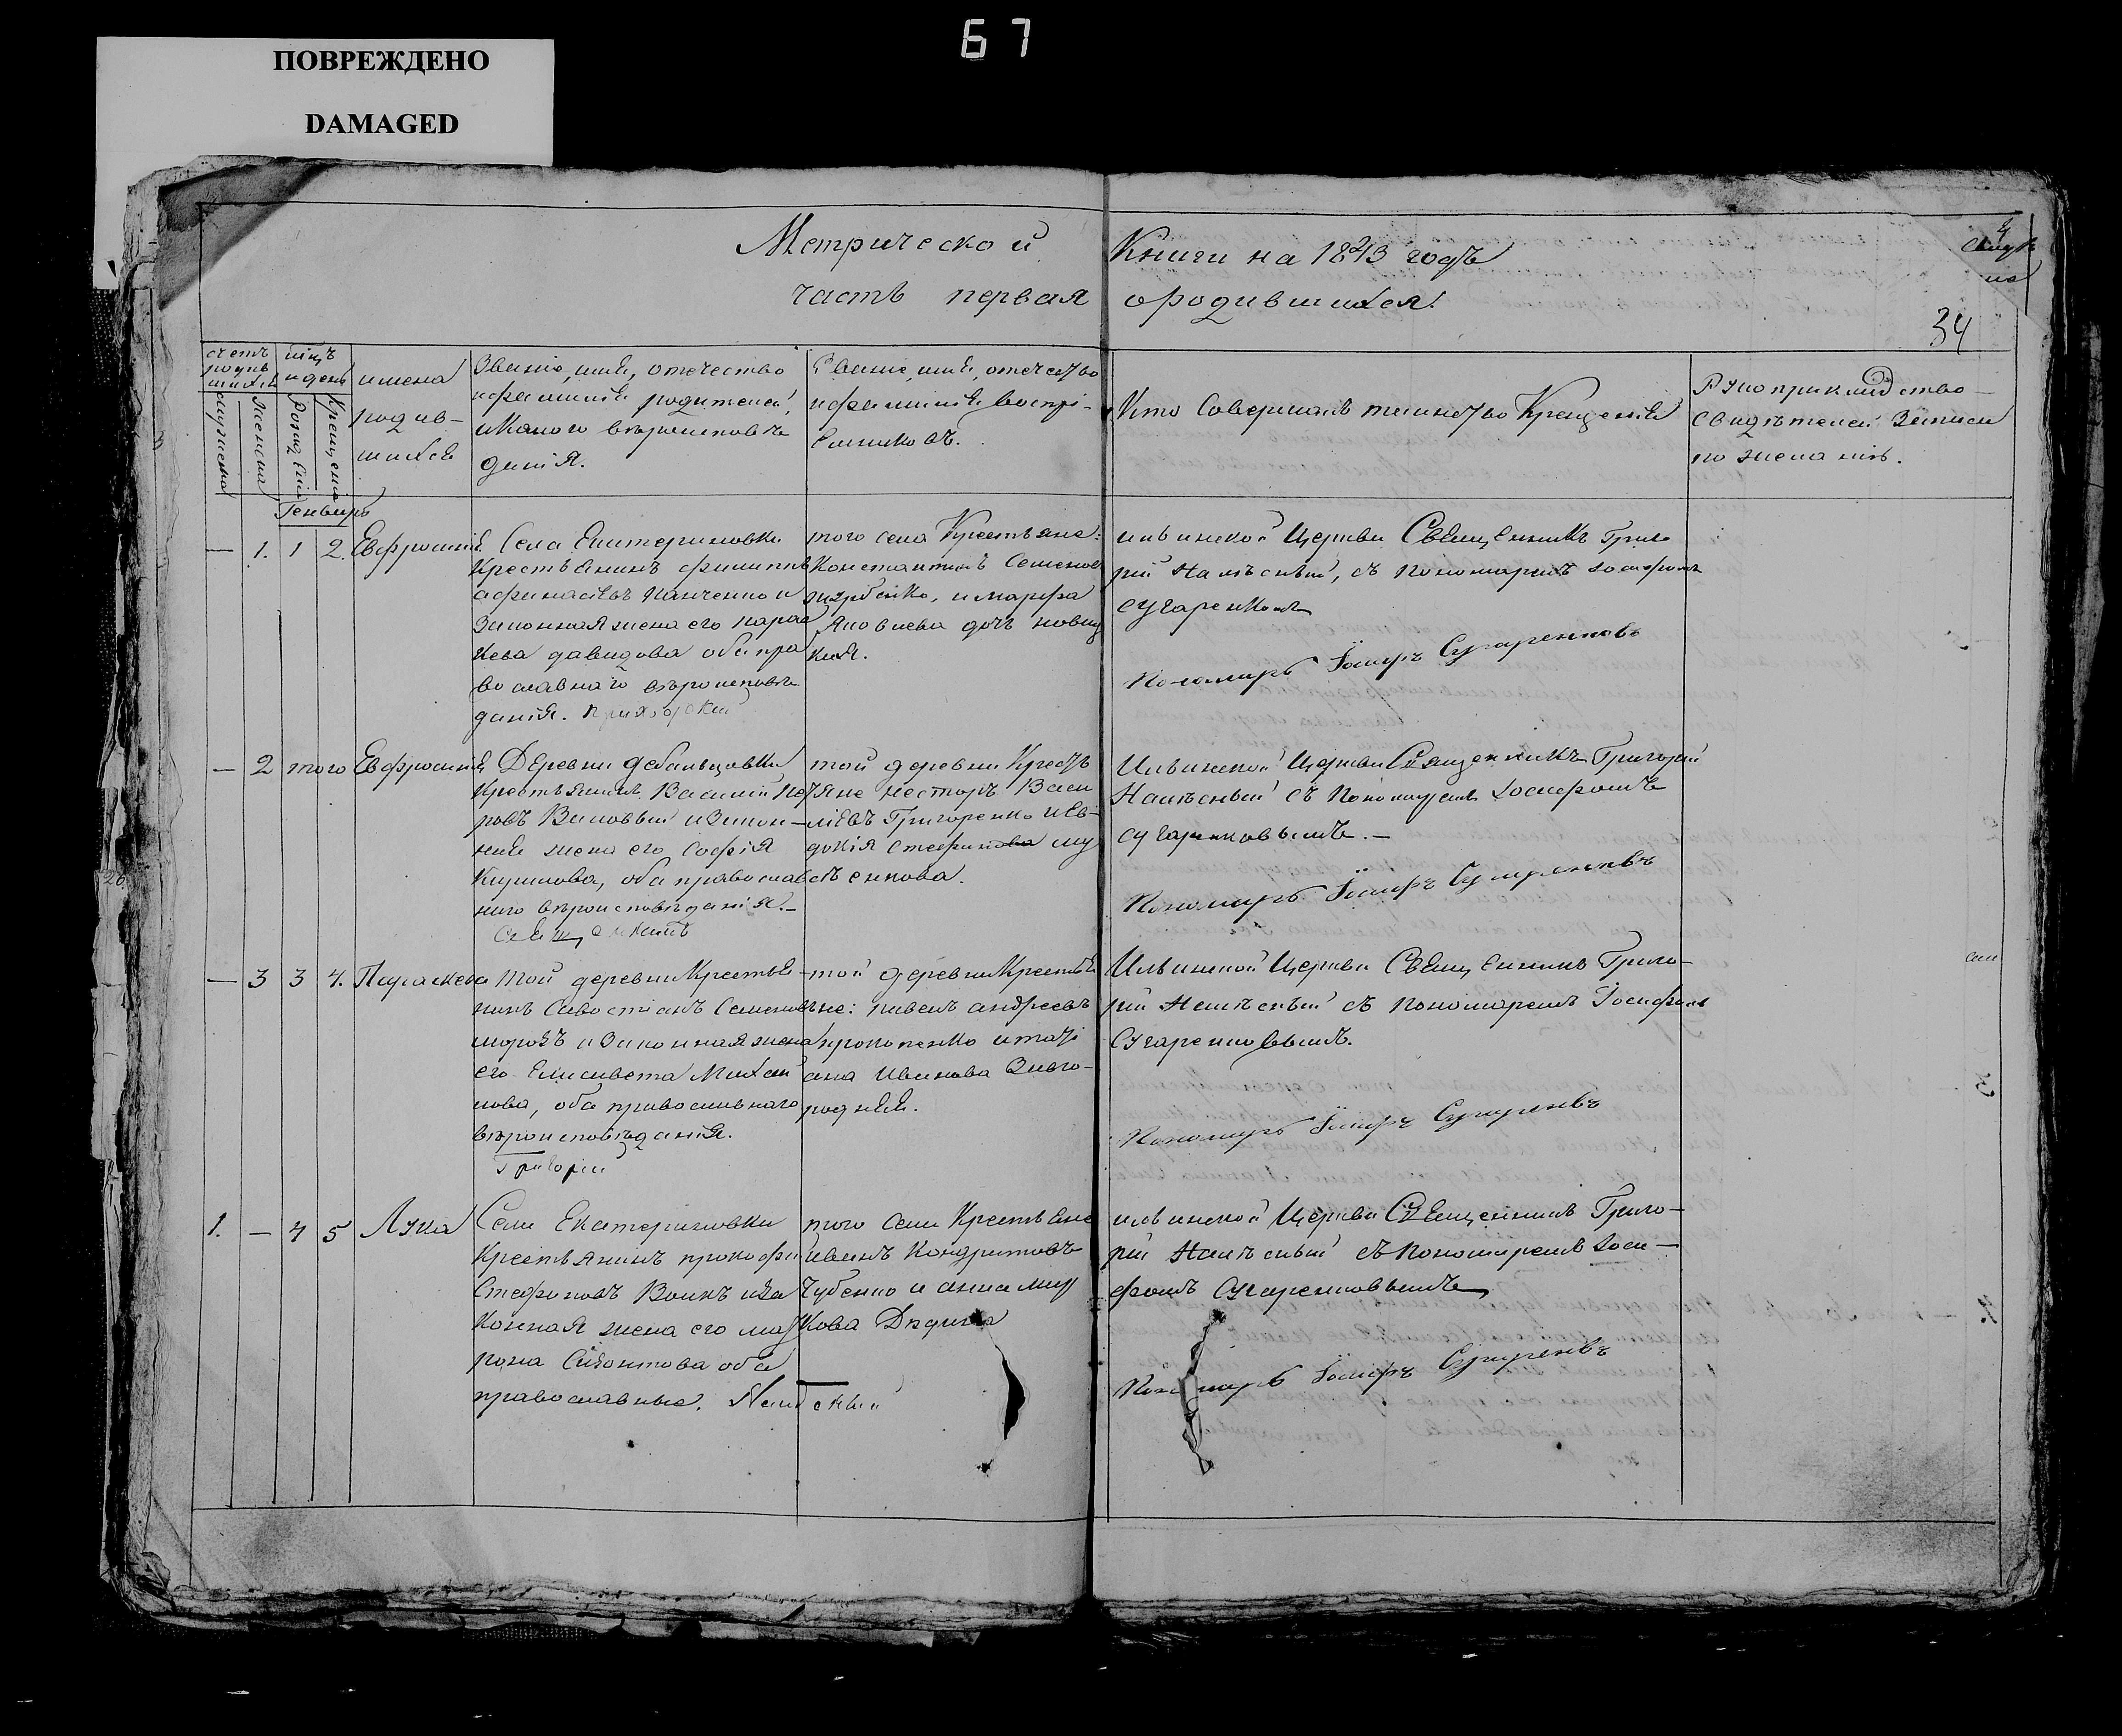 67
ПОВРЕЖДЕНО
DAMAGED
Метрической Книги на 1843 годъ
часть первая о родившихся.
34
счетъ родив шихся
мужеска
женска
мцъ и день
Рожденія
Крещенія
имена
родив-
шихся
Званіе, имя, отечество
и фамилія родителей,
и какого вѣроисповѣ
данія.
Званіе, имя, отечество
и фамилія воспрі-
емниковъ.
Кто совершалъ таинство Крещенія
Рукоприкладство
свидѣтелей записи
по желанію.
Генваря
— 1. 1 2. Евфросинія
Села Екатериновки
Крестьянинъ Филиппъ
Афанасіевъ Панченко и
Законная жена его Парас
кева Давидова оба пра
вославнаго вѣроисповѣ
данія. Приходскій
того села Крестьяне:
Константинъ Семеновъ
и Марфа
Яковлева дочь
Ильинской Церкви Священникъ Григо
рій съ Пономаремъ Іосифомъ
Сугаренко
Пономарь Іосифъ Сугаренковъ
— 2 того Евфросинія
Деревни Дебальцовки
Крестьянинъ Василій Пет
ровъ и Закон-
ная жена его Софія
Кирилова, оба православ
наго вѣроисповѣданія.—
Священникъ
той деревни Кресть
яне Несторъ Васи
ліевъ Григоренко и Ев-
докія Стефанова
Ильинской Церкви Священникъ Григорій
съ Пономаремъ Іосифомъ
Сугаренковымъ.—
Пономарь Іосифъ Сугаренковъ
— 3 3 4. Параскева
Той деревни Крестья-
нинъ Савостіанъ Семеновъ
Морозъ и Законная жена
его Елисавета Михай
лова, оба православнаго
вѣроисповѣданія.
Григорій
той деревни Крестья
не: Павелъ Андреевъ
Прокопенко и Таті
ана Иванова Завго-
родняя.
Ильинской Церкви Священникъ Григо-
рій съ Пономаремъ Іосифомъ
Сугаренковымъ.
Пономарь Іосифъ Сугаренковъ
1. — 4 5 Лука
Села Екатериновки
Крестьянинъ Прокофій
Стефановъ Вовкъ и За
конная жена его Мат
рона Сазонтова оба
православные.
того села Крестьяне
Иванъ Кондратовъ
Чубенко и Анна Мар
кова Дядина
Ильинской Церкви Священникъ Григо-
рій съ Пономаремъ Іоси-
фомъ Сугаренковымъ
Пономарь Іосифъ Сугаренковъ